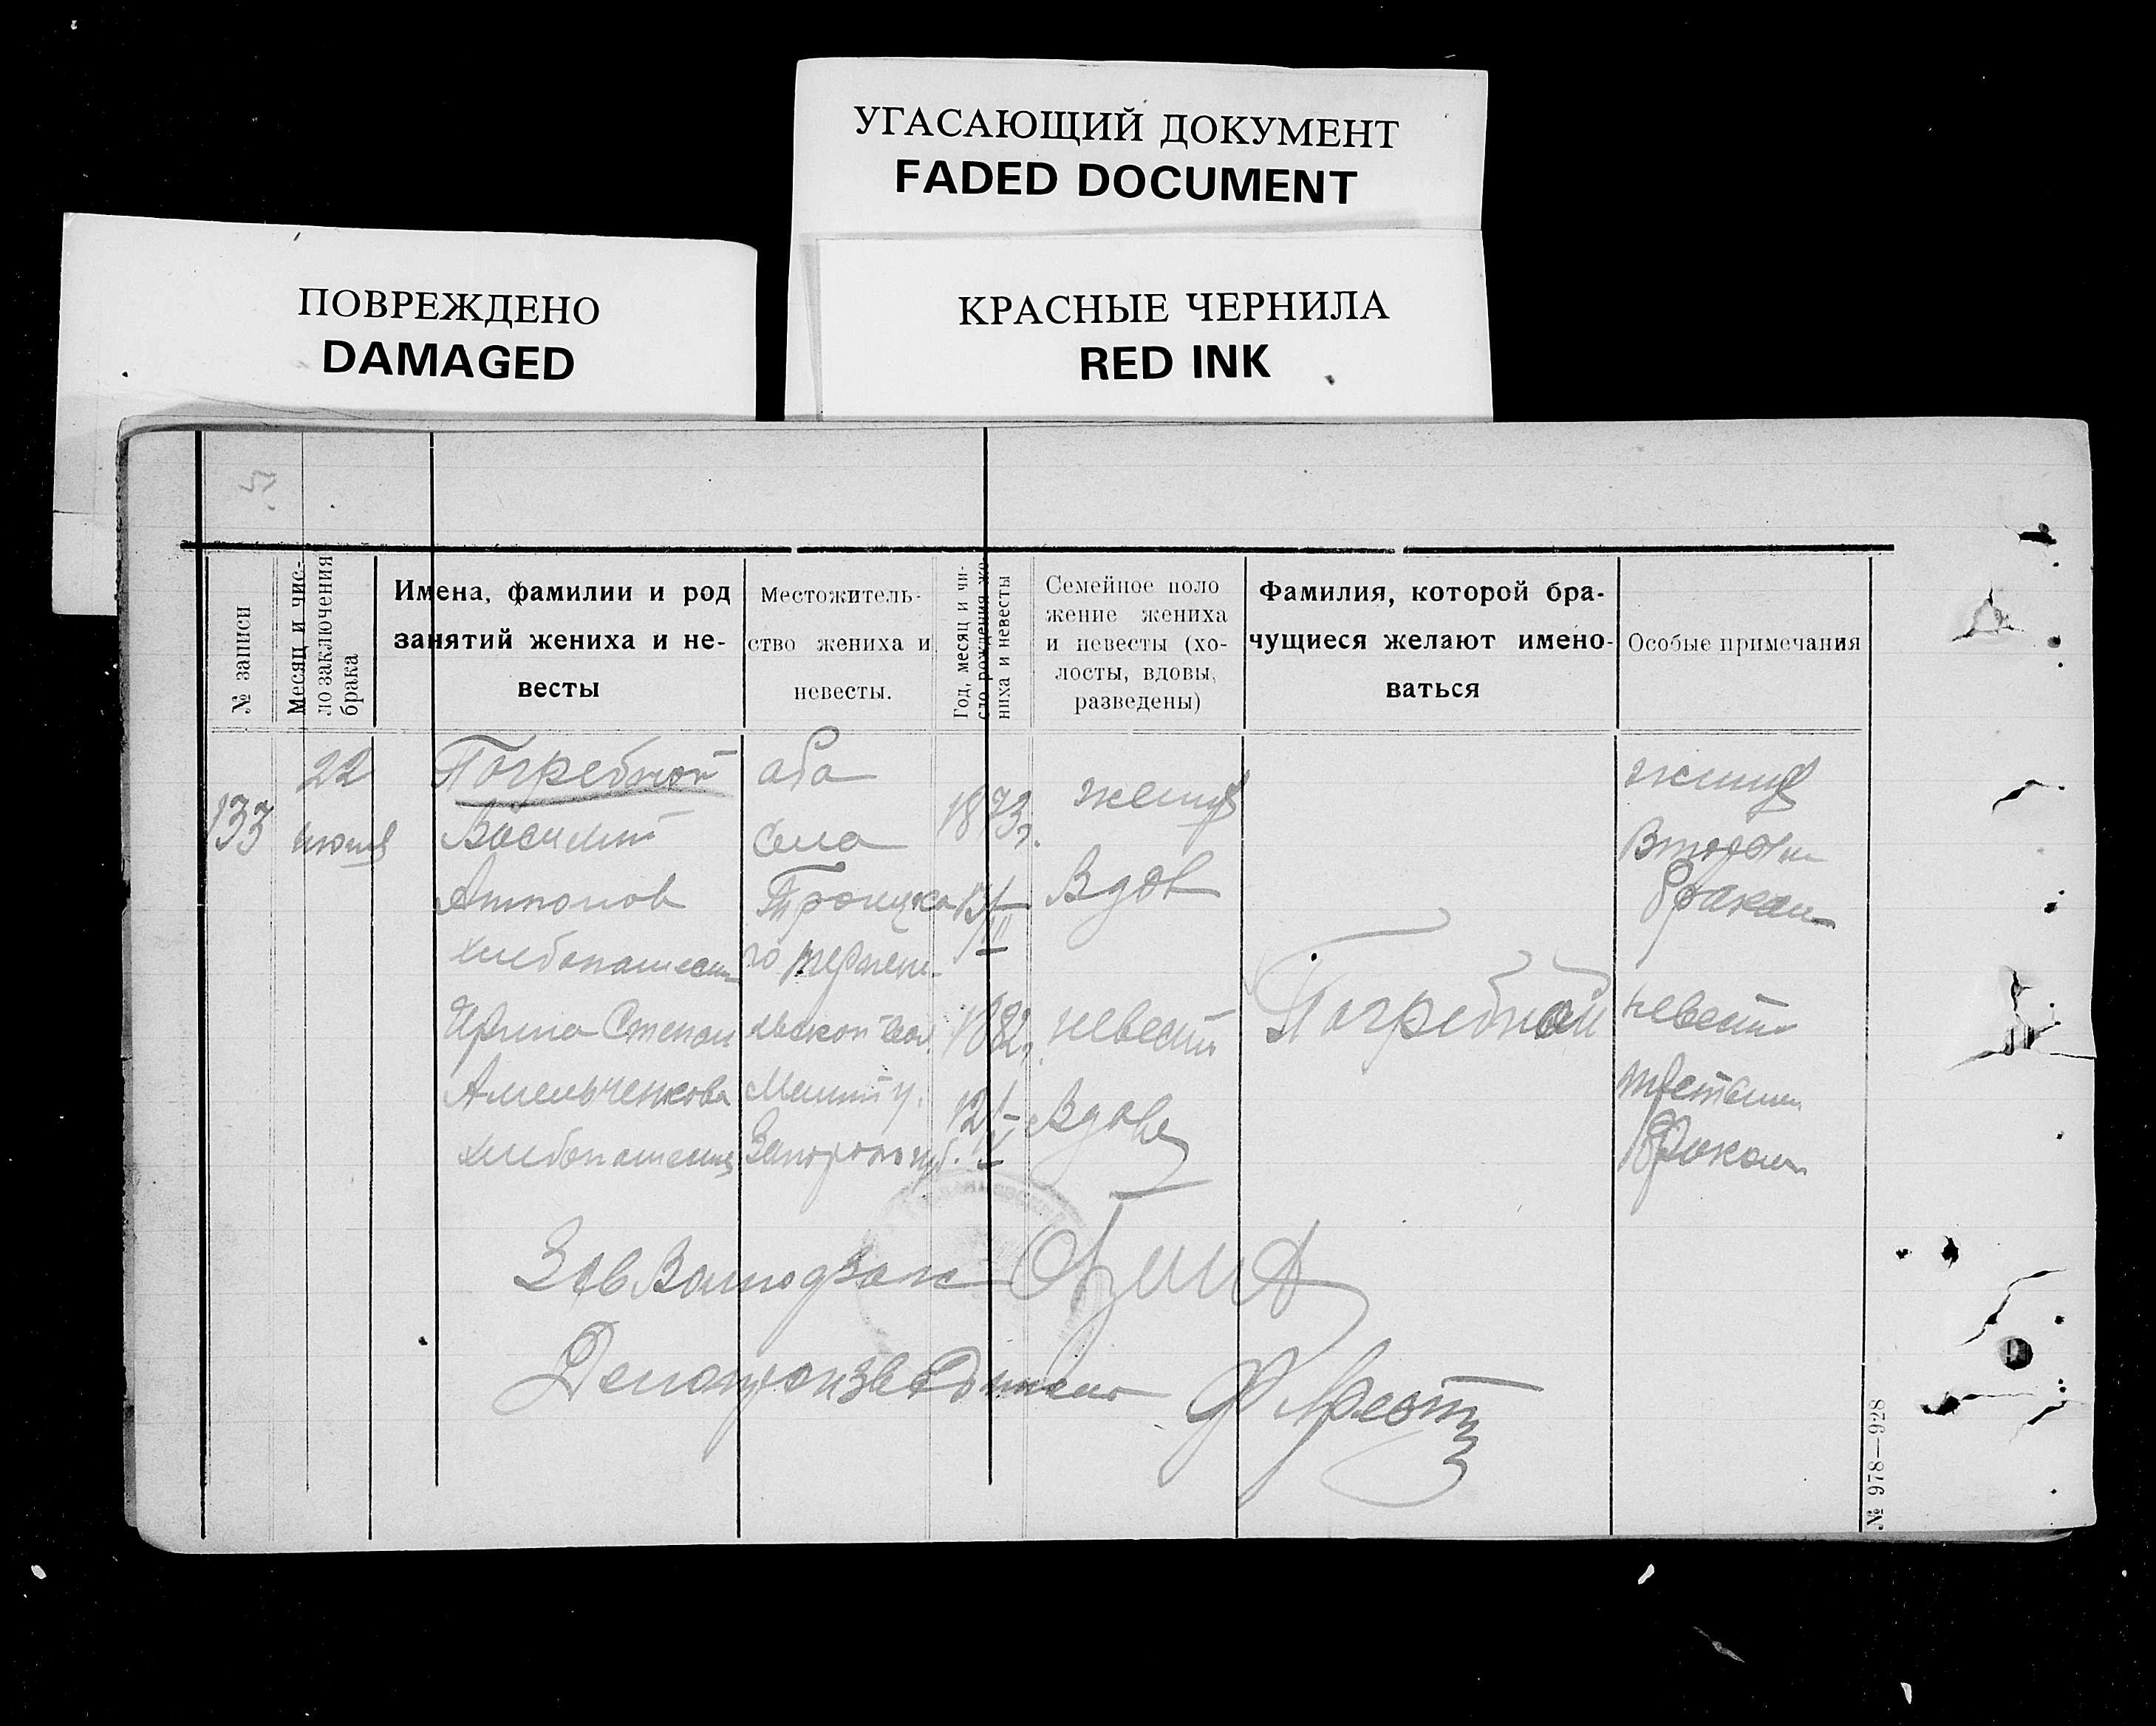 УГАСАЮЩИЙ ДОКУМЕНТ
FADED DOCUMENT
ПОВРЕЖДЕНО
DAMAGED
КРАСНЫЕ ЧЕРНИЛА
RED INK
№ записи
Месяц и чис-
ло заключения
брака
Имена, фамилии и род
занятий жениха и не-
весты
Местожитель-
ство жениха и
невесты.
Год, месяц и чи-
сло рождения же
ниха и невесты
Семейное поло
жение жениха
и невесты (хо-
лосты, вдовы,
разведены)
Фамилия, которой бра-
чущиеся желают имено-
ваться
Особые примечания
133
22
июня
Погребной
Василий
Антонов
хлебопашец
Ирина Степан
Амельченкова
хлебопашец
оба
села
Троицка
го
Мелит у.
Запорож губ.
1873г.
1882г.
жених
Вдов
невеста
Вдова
Погребной
жених
Вторым
браком
невеста
третьим
браком
Зав
Делопроизводитель
№ 978—928